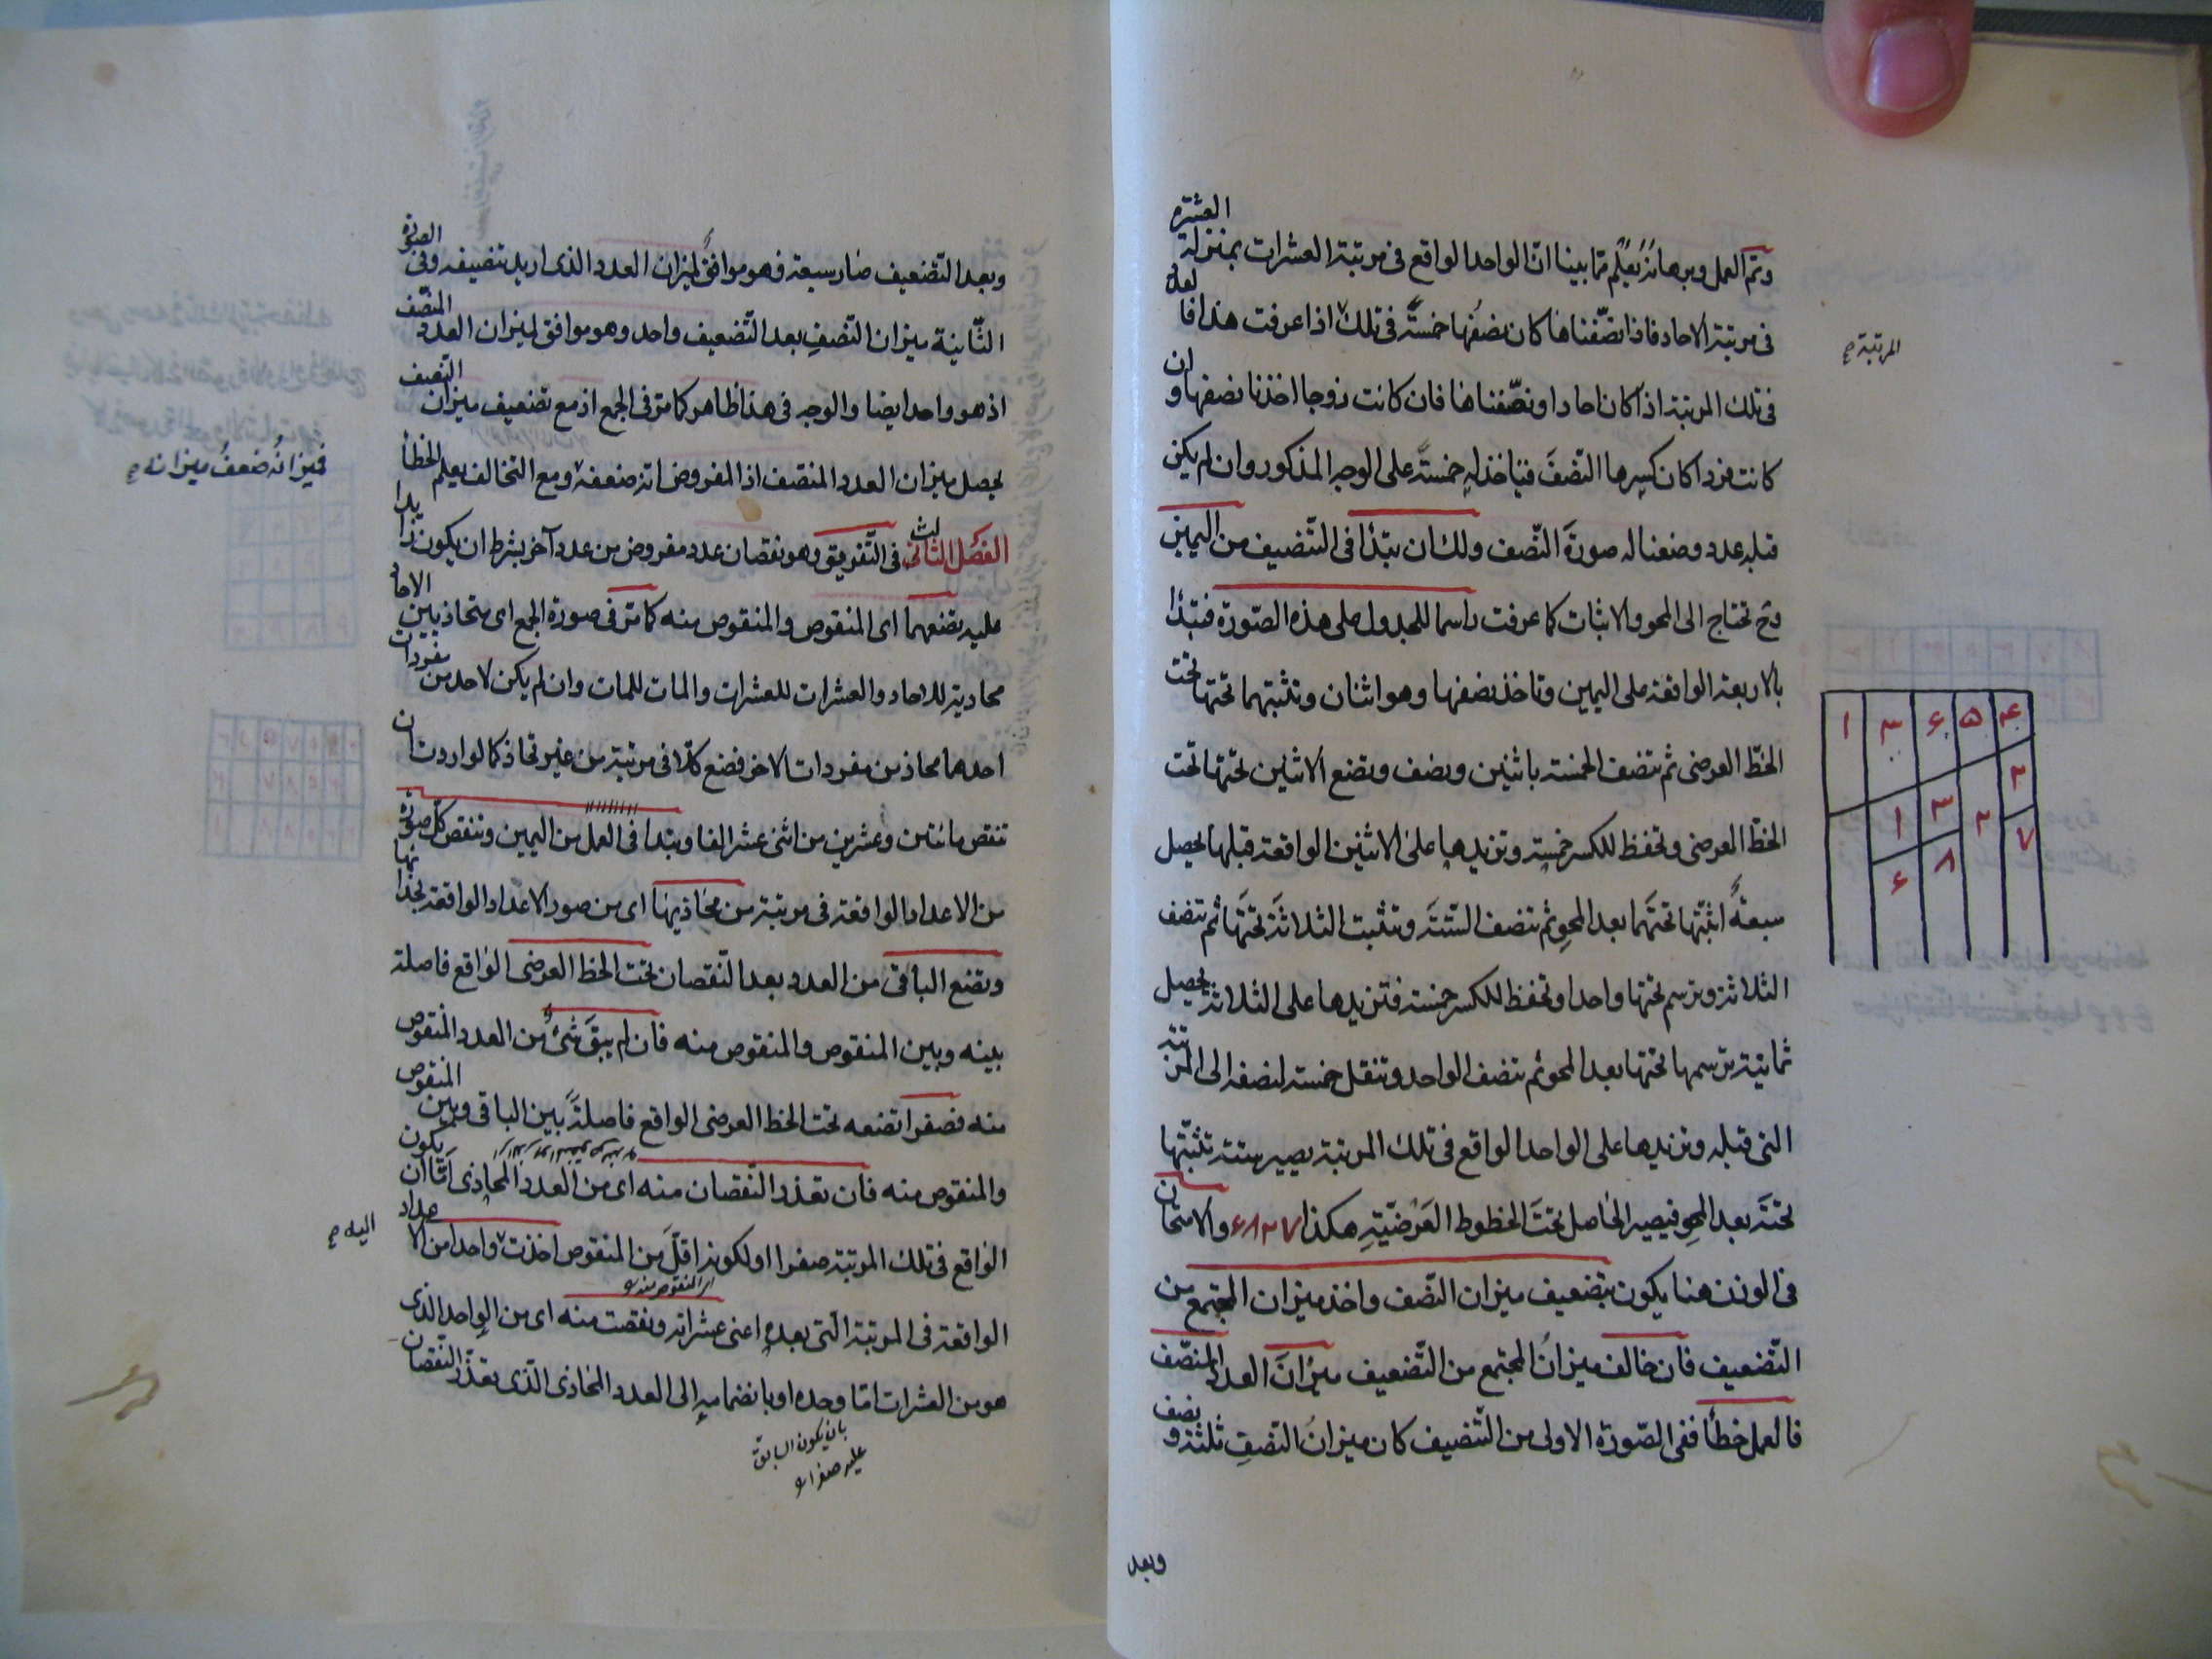 وتمّ العمل وبرهانُهُ يُعلم مما بينا انّ الواحد الواقع فى مرتبة العشرات بمنزلة العشرة
فى مرتبة الاحاد فاذا نصّفناها كان نصفُها خمسةً فى تلك اذا عرفت هذا فا لعدد
المرتبة صح
فى تلك المرتبة اذا كان احادا ونصّفناها فان كانت زوجا اخذنا نصفها وان
كانت فردا كان كسرها النّصفَ فيأخذ له خمسةً على الوجه المذكور وان لم يكن
قبله عدد وضعنا له صورةَ النّصف ولك ان تبتدأ فى التّنصيف من اليمين
وح تحتاج الى المحو والاثبات كما عرفت راسما للجدول على هذه الصّورة فتبتدأ
بالاربعة الواقعة على اليمين وتاخذ نصفها وهو اثنان وتثبتهما تحتها تحت
الخطّ العرضى ثم تنصف الخمسة باثنين ونصف وتضع الاثنين تحتها تحت
الخطّ العرضى وتحفظ للكسر خمسة وتزيدها على الاثنين الواقعة قبلها يحصل
سبعةٌ اثبتها تحتَهما بعد المحو ثم تنصف السّتةَ وتثبت الثلاثةَ تحتَها ثم تنصف
الثلاثة وترسم تحتها واحدا وتحفظ للكسر خمسة فتزيدها على الثلاثة يحصل
ثمانية ترسمها تحتها بعد المحو ثم تنصف الواحد وتنقل خمسة لنصفه الى المرتبة
التى قبله وتزيدها على الواحد الواقع فى تلك المرتبة يصير ستة تثبتها
تحتَه بعد المحو فيصير الحاصل تحتَ الخطوط العَرْضيّةِ هكذا ۶۸۲۷ والامتحان
فى الوزن هنا يكون بتضعيف ميزان النّصف واخذ ميزان المجتمع من
التّضعيف فان خالف ميزانُ المجتمع من التّضعيف ميزانَ العدد المنصّف
فالعمل خطأ ففى الصّورة الاولى من التّنصيف كان ميزانُ النّصفِ ثلثة ونصف
وبعد
۱ ۳ ۶ ۵ ۴
۲
۱ ۳ ۲ ۷
۶ ۸
وبعد التّضعيف صار سبعة فهو موافقٌ لميزان العدد الذى اريد تنصيفه وفى الصورة
الثّانية ميزان النّصفِ بعد التّضعيف واحد وهو موافق لميزان العدد المنصّف
اذ هو واحد ايضا والوجه فى هذا ظاهر كما مرّ فى الجمع اذ مع تضعيف ميزان النّصف
يحصل ميزان العدد المنتصف اذ المفروض انه ضعفه ومع التخالف يعلم الخطأ
فميزانُه ضعفُ ميزانه صح
الفصل الثالث فى التّفريق وهو نقصان عدد مفروض من عدد آخر بشرط ان يكون زائدا
عليه تضعهما اى المنقوص والمنقوص منه كما مرّ فى صورة الجمع اى متحاذيين الاحاد
محاذية للاحاد والعشرات للعشرات والمات للمات وان لم يكن لاحد من مفردات
احدهما محاذ من مفردات الاخر فضع كلّا فى مرتبة من غير تحاذ كما لو اردت ان
تنقص مائتين وعشرين من اثنى عشر الفا وتبتدأ فى العمل من اليمين وتنقص كلّ صورة
من الاعداد الواقعة فى مرتبة من محاذيها اى من صور الاعداد الواقعة بحذائها
وتضع الباقى من العدد بعد النّقصان تحت الخط العرضى الواقع فاصلة
بينه وبين المنقوص والمنقوص منه فان لم يبقَ شئٌ من العدد المنقوص
منه فصفرا تضعه تحت الخط العرضى الواقع فاصلةً بين الباقى وبين المنقوص
والمنقوص منه فان تعذر النّقصان منه اى من العدد المحاذى امّا ان يكون
الواقع فى تلك المرتبة صفرا او لكونه اقلَّ من المنقوص اخذت واحدا من الاعداد
اليه صح
الواقعة فى المرتبة التى بعده اعنى عشراته ونقصت منه اى من الواحد الذى
اى المنقوص منه
هو من العشرات امّا وحده او بانضمامه الى العدد المحاذى الّذى تعذّر النّقصان
بان يكون السابق
عليه صفرا